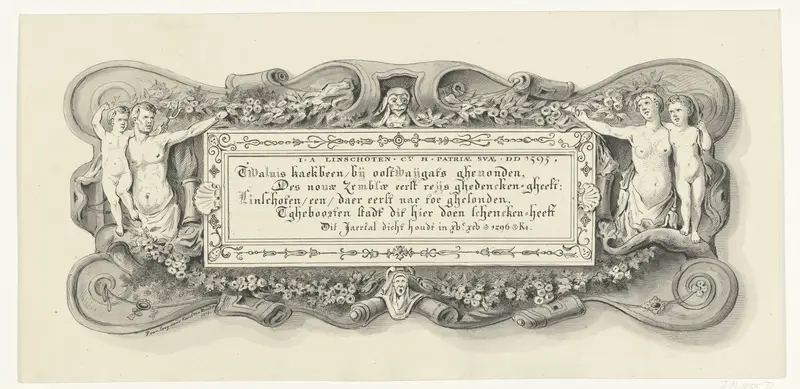 I · A LINSCHOTEN · Cᵛ H · PATRIÆ SVÆ · DD 1595 ·
Twaluis kaekbeen / bÿ oostwaÿgats gheuonden,
Des nouæ Zemblæ eerst reÿs ghedencken-gheeft;
Linschoten / een / daer eerst nae toe ghesonden,
Tgheboorten stadt dit hier doen schencken-heeft
Dit Jaertal dicht houdt in
1596